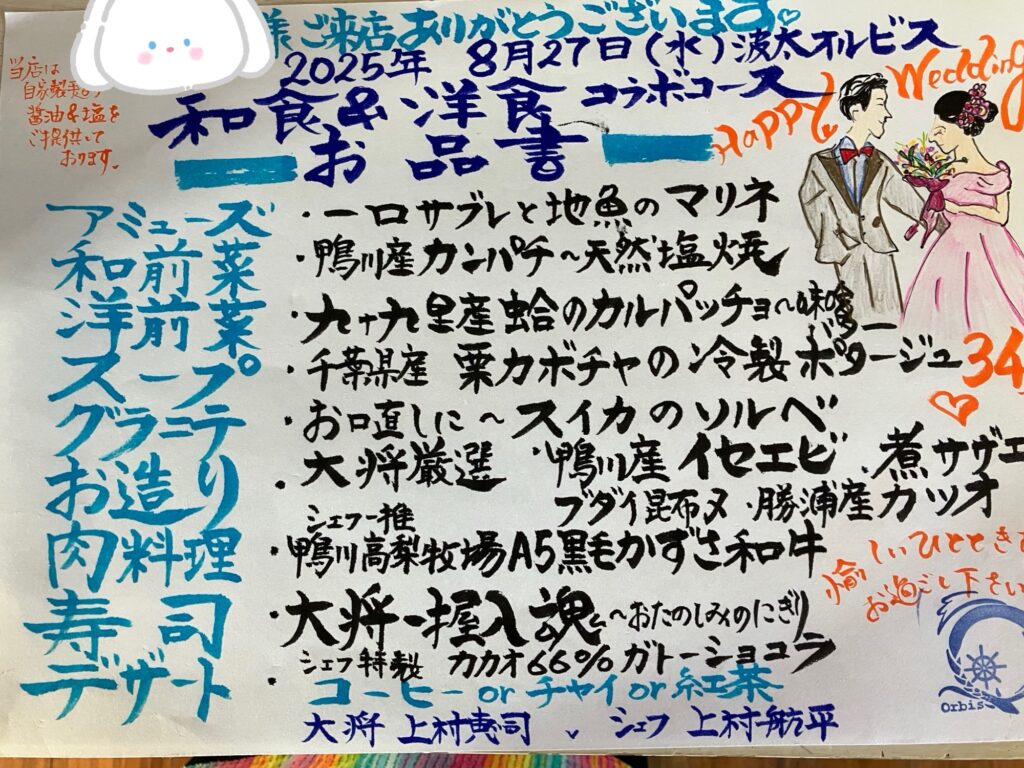 様 ご来店ありがとうございます。♡
2025年 8月27日(水)波太オルビス
和食&洋食 コラボコース
お品書
当店は
自家製煮きり
醤油&塩を
ご提供して
おります。
Happy Wedding
34
アミューズ ・一口サブレと地魚のマリネ
和前菜 ・鴨川産カンパチ~天然塩焼
洋前菜 ・九十九里産 蛤のカルパッチョ~味噌
スープ ・千葉県産 栗カボチャの冷製ポタージュ
グラニテ ・お口直しに~スイカのソルベ
お造り ・大将厳選 ・鴨川産イセエビ ・煮サザエ
ブダイ昆布〆 ・勝浦産カツオ
シェフ一推
肉料理 ・鴨川高梨牧場A5黒毛かずさ和牛
寿司 ・大将一握入魂~おたのしみのにぎり
デザート ・シェフ特製 カカオ66%ガトーショコラ
コーヒーorチャイor紅茶
大将 上村恵司 、シェフ 上村航平
愉しいひとときを
お過ごし下さい
Orbis